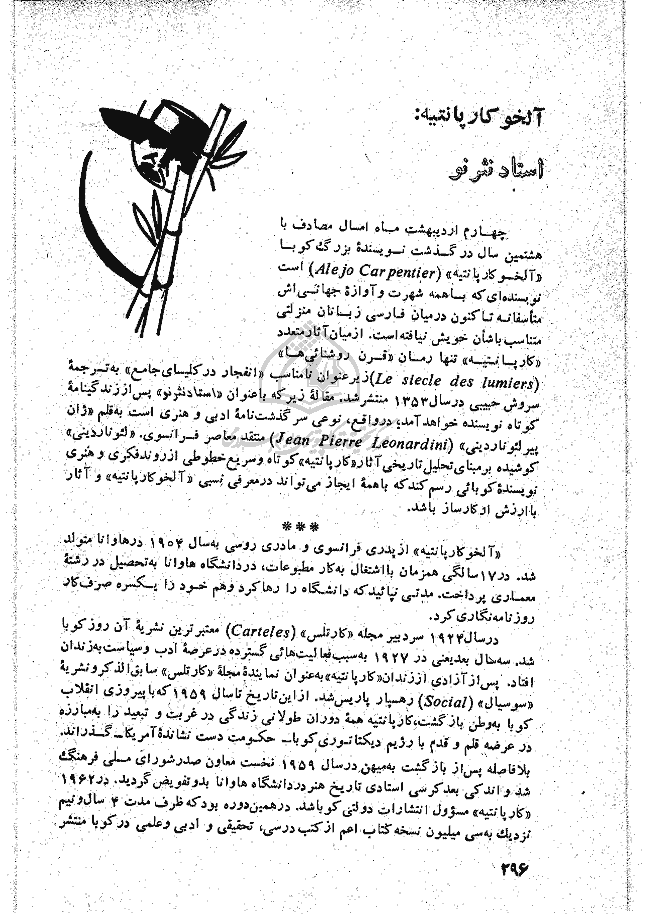 آلخو کارپانتیه:
استاد نثر نو
چهـارم اردیبهشت مـاه امسال مصادف با
هشتمین سال در گـذشت نـویسندهٔ بزرگ کوبـا
«آلخـو کارپانتیه» (Alejo Carpentier) است
نویسنده‌ای که بـا همه شهرت و آوازهٔ جهانـی‌اش
متأسفانـه تـا کنون درمیان فارسی زبـانان منزلتی
متناسب باشأن خویش نیافته‌است. ازمیان آثار متعدد
«کارپـانتیـه» تنها رمـان «قـرن روشنائی‌هـا»
(Le siecle des lumiers) زیرعنوان نامناسب «انفجار در کلیسای جامع» به‌ترجمهٔ
سروش حبیبی درسال ۱۳۵۳ منتشرشد. مقالهٔ زیر که باعنوان «استاد نثرنو» پس‌از زندگینامهٔ
کوتاه نویسنده خواهد آمد؛ درواقع، نوعی سرگذشت‌نامهٔ ادبی و هنری است به‌قلم «ژان
پیر لئوناردینی» (Jean Pierre Leonardini) منتقد معاصر فرانسوی. «لئوناردینی»
کوشیده برمبنای تحلیل تاریخی آثار «کارپانتیه» کوتاه وسریع خطوطی ازروند فکری و هنری
نویسندهٔ کوبائی رسم کند که باهمهٔ ایجاز می‌تواند درمعرفی نسبی «آلخو کارپانتیه» و آثار
باارزش او کارساز باشد.
***
«آلخو کارپانتیه» ازپدری فرانسوی و مادری روسی به‌سال ۱۹۰۴ درهاوانا متولد
شد. در۱۷ سالگی همزمان بااشتغال به‌کار مطبوعات، دردانشگاه هاوانا به‌تحصیل در رشتهٔ
معماری پرداخت. مدتـی نپائید که دانشگاه را رها کرد وهم خـود را یـکسره صرف‌کار
روزنامه‌نگاری کرد.
درسال۱۹۲۴ سردبیر مجله «کارتلس» (Carteles) معتبرترین نشریهٔ آن روز کوبا
شد. سه‌سال بعدیعنی در ۱۹۲۷ به‌سبب فعالیت‌هائی گسترده درعرصهٔ ادب وسیاست به‌زندان
افتاد. پس‌از آزادی اززندان «کارپانتیه» به‌عنوان نمایندهٔ مجلهٔ «کارتلس» سابق‌الذکر و نشریهٔ
«سوسیال» (Social) رهسپار پاریس‌شد. ازاین‌تاریخ تاسال ۱۹۵۹ که‌با پیروزی انقلاب
کوبا به‌وطن بازگشت، کارپانتیه همهٔ دوران طولانی زندگی در غربت و تبعید را به‌مبارزه
در عرضه قلم و قدم با رژیم دیکتاتـوری کوبا‌ـ حکـومت دست نشاندهٔ آمریکا‌ـ گـذراند.
بلافاصله پس‌از بازگشت به‌میهن درسال ۱۹۵۹ نخست معاون صدرشورای مـلی فرهنگ
شد و اندکی بعد کرسی استادی تاریخ هنر دردانشگاه هاوانا بدو تفویض گردید. در۱۹۶۲
«کارپانتیه» مسؤول انتشارات دولتی کوباشد. درهمین‌دوره بود که ظرف مدت ۴ سال و نیم
نزدیك به‌سی میلیون نسخه کتاب اعم از کتب درسی، تحقیقی و ادبی وعلمی در کوبا منتشر
۲۹۶